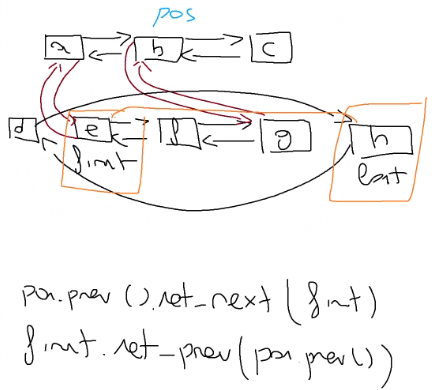 pos
a b c
d e f g h
first last
pos.prev().set_next(first)
first.set_prev(pos.prev())